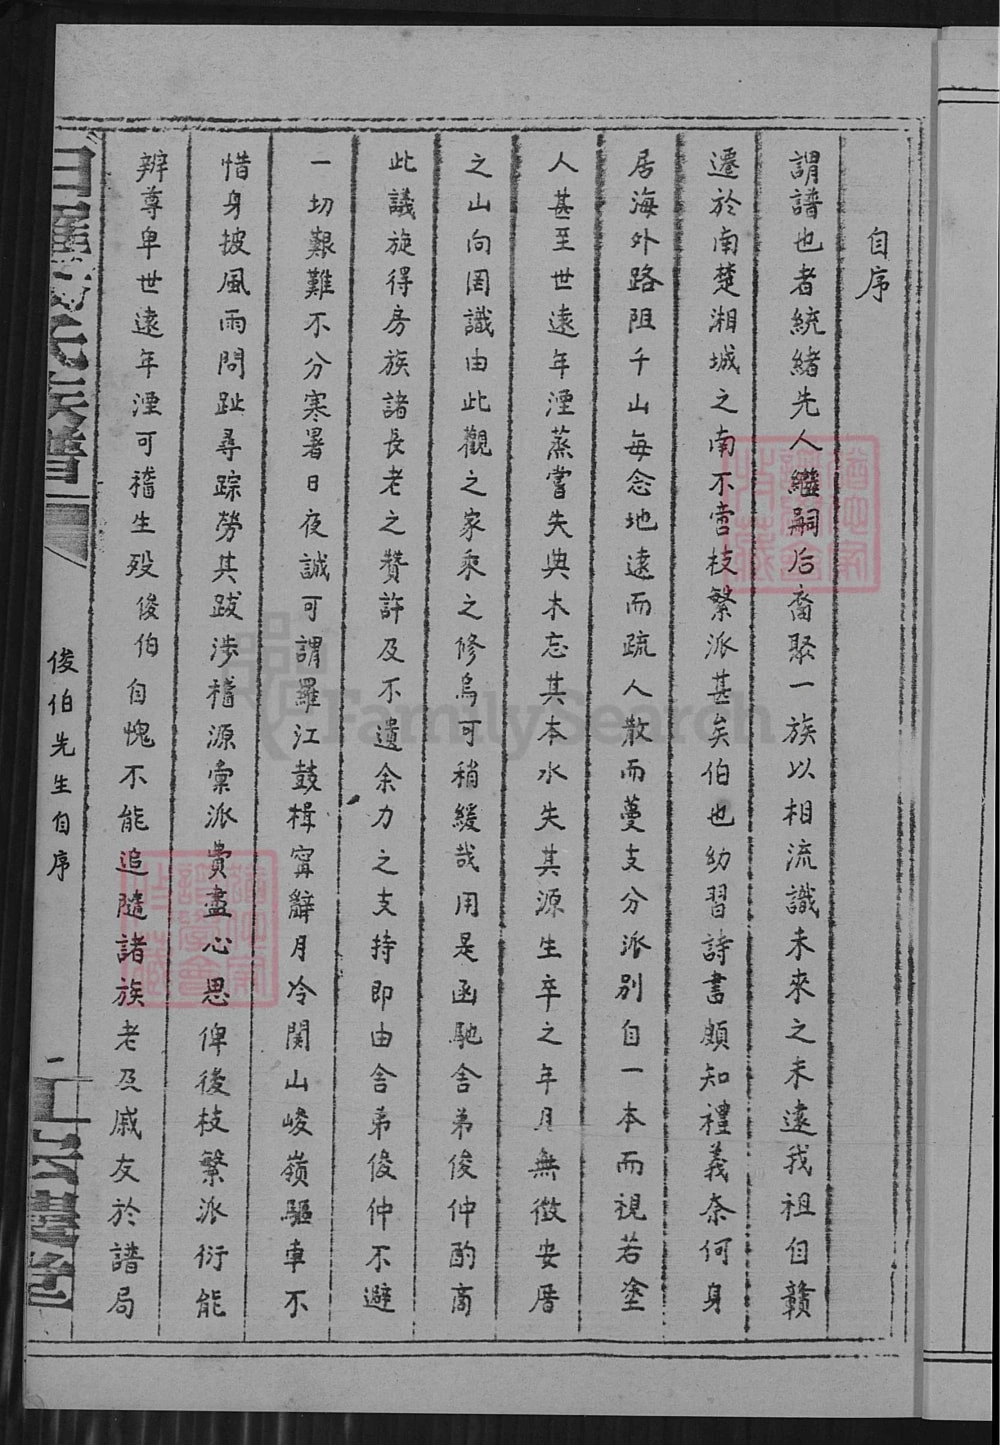 自序
謂譜也者統緒先人繼嗣后裔聚一族以相流識未來之未逮我祖自贛
遷於南楚湘城之南不啻枝繁派甚矣伯也幼習詩書頗知禮義奈何身
居海外路阻千山每念地遠而疏人散而蔓支分派別自一本而視若塗
人甚至世遠年湮蒸嘗失典木忘其本水失其源生卒之年月無徵安厝
之山向罔識由此觀之家乘之修烏可稍緩哉用是函馳舍弟俊仲酌商
此議旋得房族諸長老之贊許及不遺余力之支持即由舍弟俊仲不避
一切艱難不分寒暑日夜誠可謂羅江鼓楫甯辭月冷関山峻嶺驅車不
惜身披風雨問趾尋踪勞其跋涉稽源彙派費盡心思俾後枝繁派衍能
辨尊卑世遠年湮可稽生殁俊伯自愧不能追隨諸族老及戚友於譜局
俊伯先生自序
氏族譜